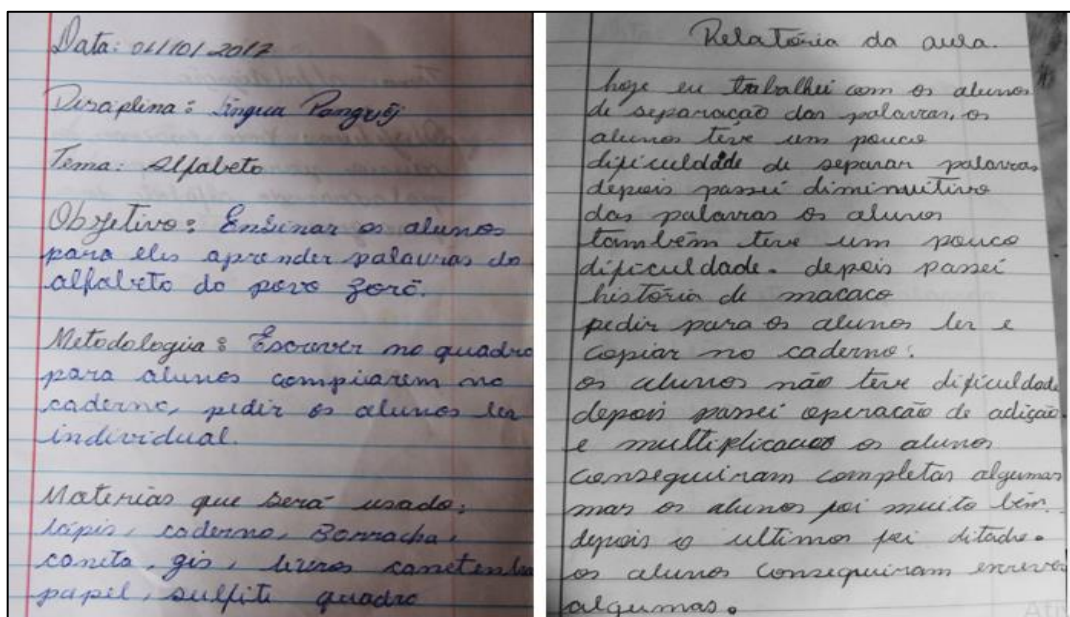 Data: 01/10/2017
Disciplina: Língua Panguj̃ej
Tema: Alfabeto
Objetivo: Ensinar os alunos
para eles aprender palavras do
alfabeto do povo zoró.
Metodologia: Escrever no quadro
para alunos compiarem no
caderno, pedir os alunos ler
individual.
Materias que será usado:
lápis, caderno, Borracha,
caneta, gis, livros
papel, sulfite quadro
Relatória da aula.
hoje eu trabalhei com os alunos
de separação das palavras, os
alunos teve um pouco
dificuldade de separar palavras
depois passei diminuitivo
das palavras os alunos
também teve um pouco
dificuldade. depois passei
história de macaco
pedir para os alunos ler e
copiar no caderno.
os alunos não teve dificuldade
depois passei operacão de adição
e multiplicacao os alunos
conseguiram completas algumas
mas os alunos foi muito bem.
depois o ultimos foi ditado.
os alunos conseguiram escrever
algumas.